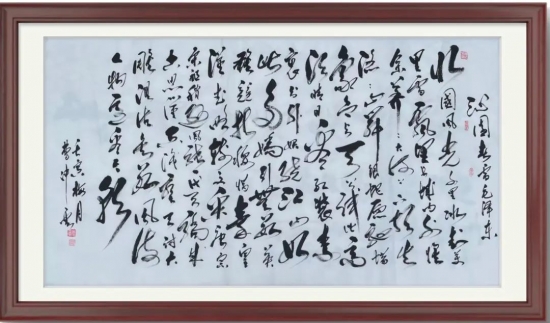 沁園春雪毛泽东
北國風光千里冰封萬
里雪飄望长城内外惟
余莽莽大河上下顿失
滔滔山舞银蛇原驰蜡
象欲与天公试比高
须晴日看红装素
裹分外妖娆江山如
此多嬌引無数英
雄競折腰惜秦皇
漢武略输文采唐宗
宋祖稍逊風骚一代天骄成
吉思汗只識弯弓射大
雕俱往矣数風流
人物还看今朝
壬寅梅月